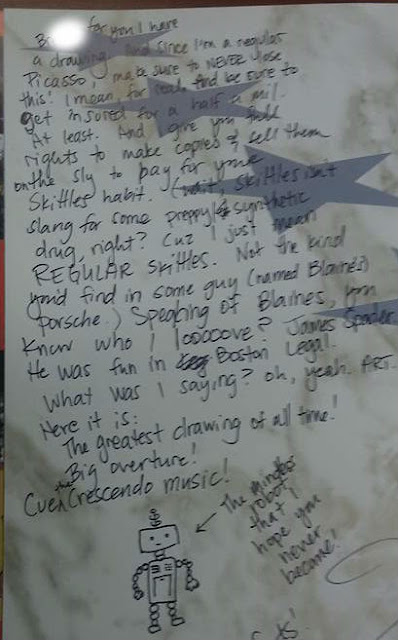 for you I have
a drawing. And since I'm a regular
Picasso, make sure to NEVER lose
this! I mean, for real. And be sure to
get insured for a half a mil.
At least. And give you full
rights to make copies & sell them
on the sly to pay for your
Skittles habit. (wait, skittles isn't
slang for some preppy synthetic
drug, right? Cuz I just mean
REGULAR Skittles. Not the kind
you'd find in some guy (named Blaine's)
Porsche.) Speaking of Blaines, you
know who I looooove? James Spader.
He was fun in Boston Legal.
What was I saying? Oh, yeah. ART.
Here it is:
The greatest drawing of all time!
Big overture!
Cue the Crescendo music!
The mindless
robot
that I
hope you
never
become!